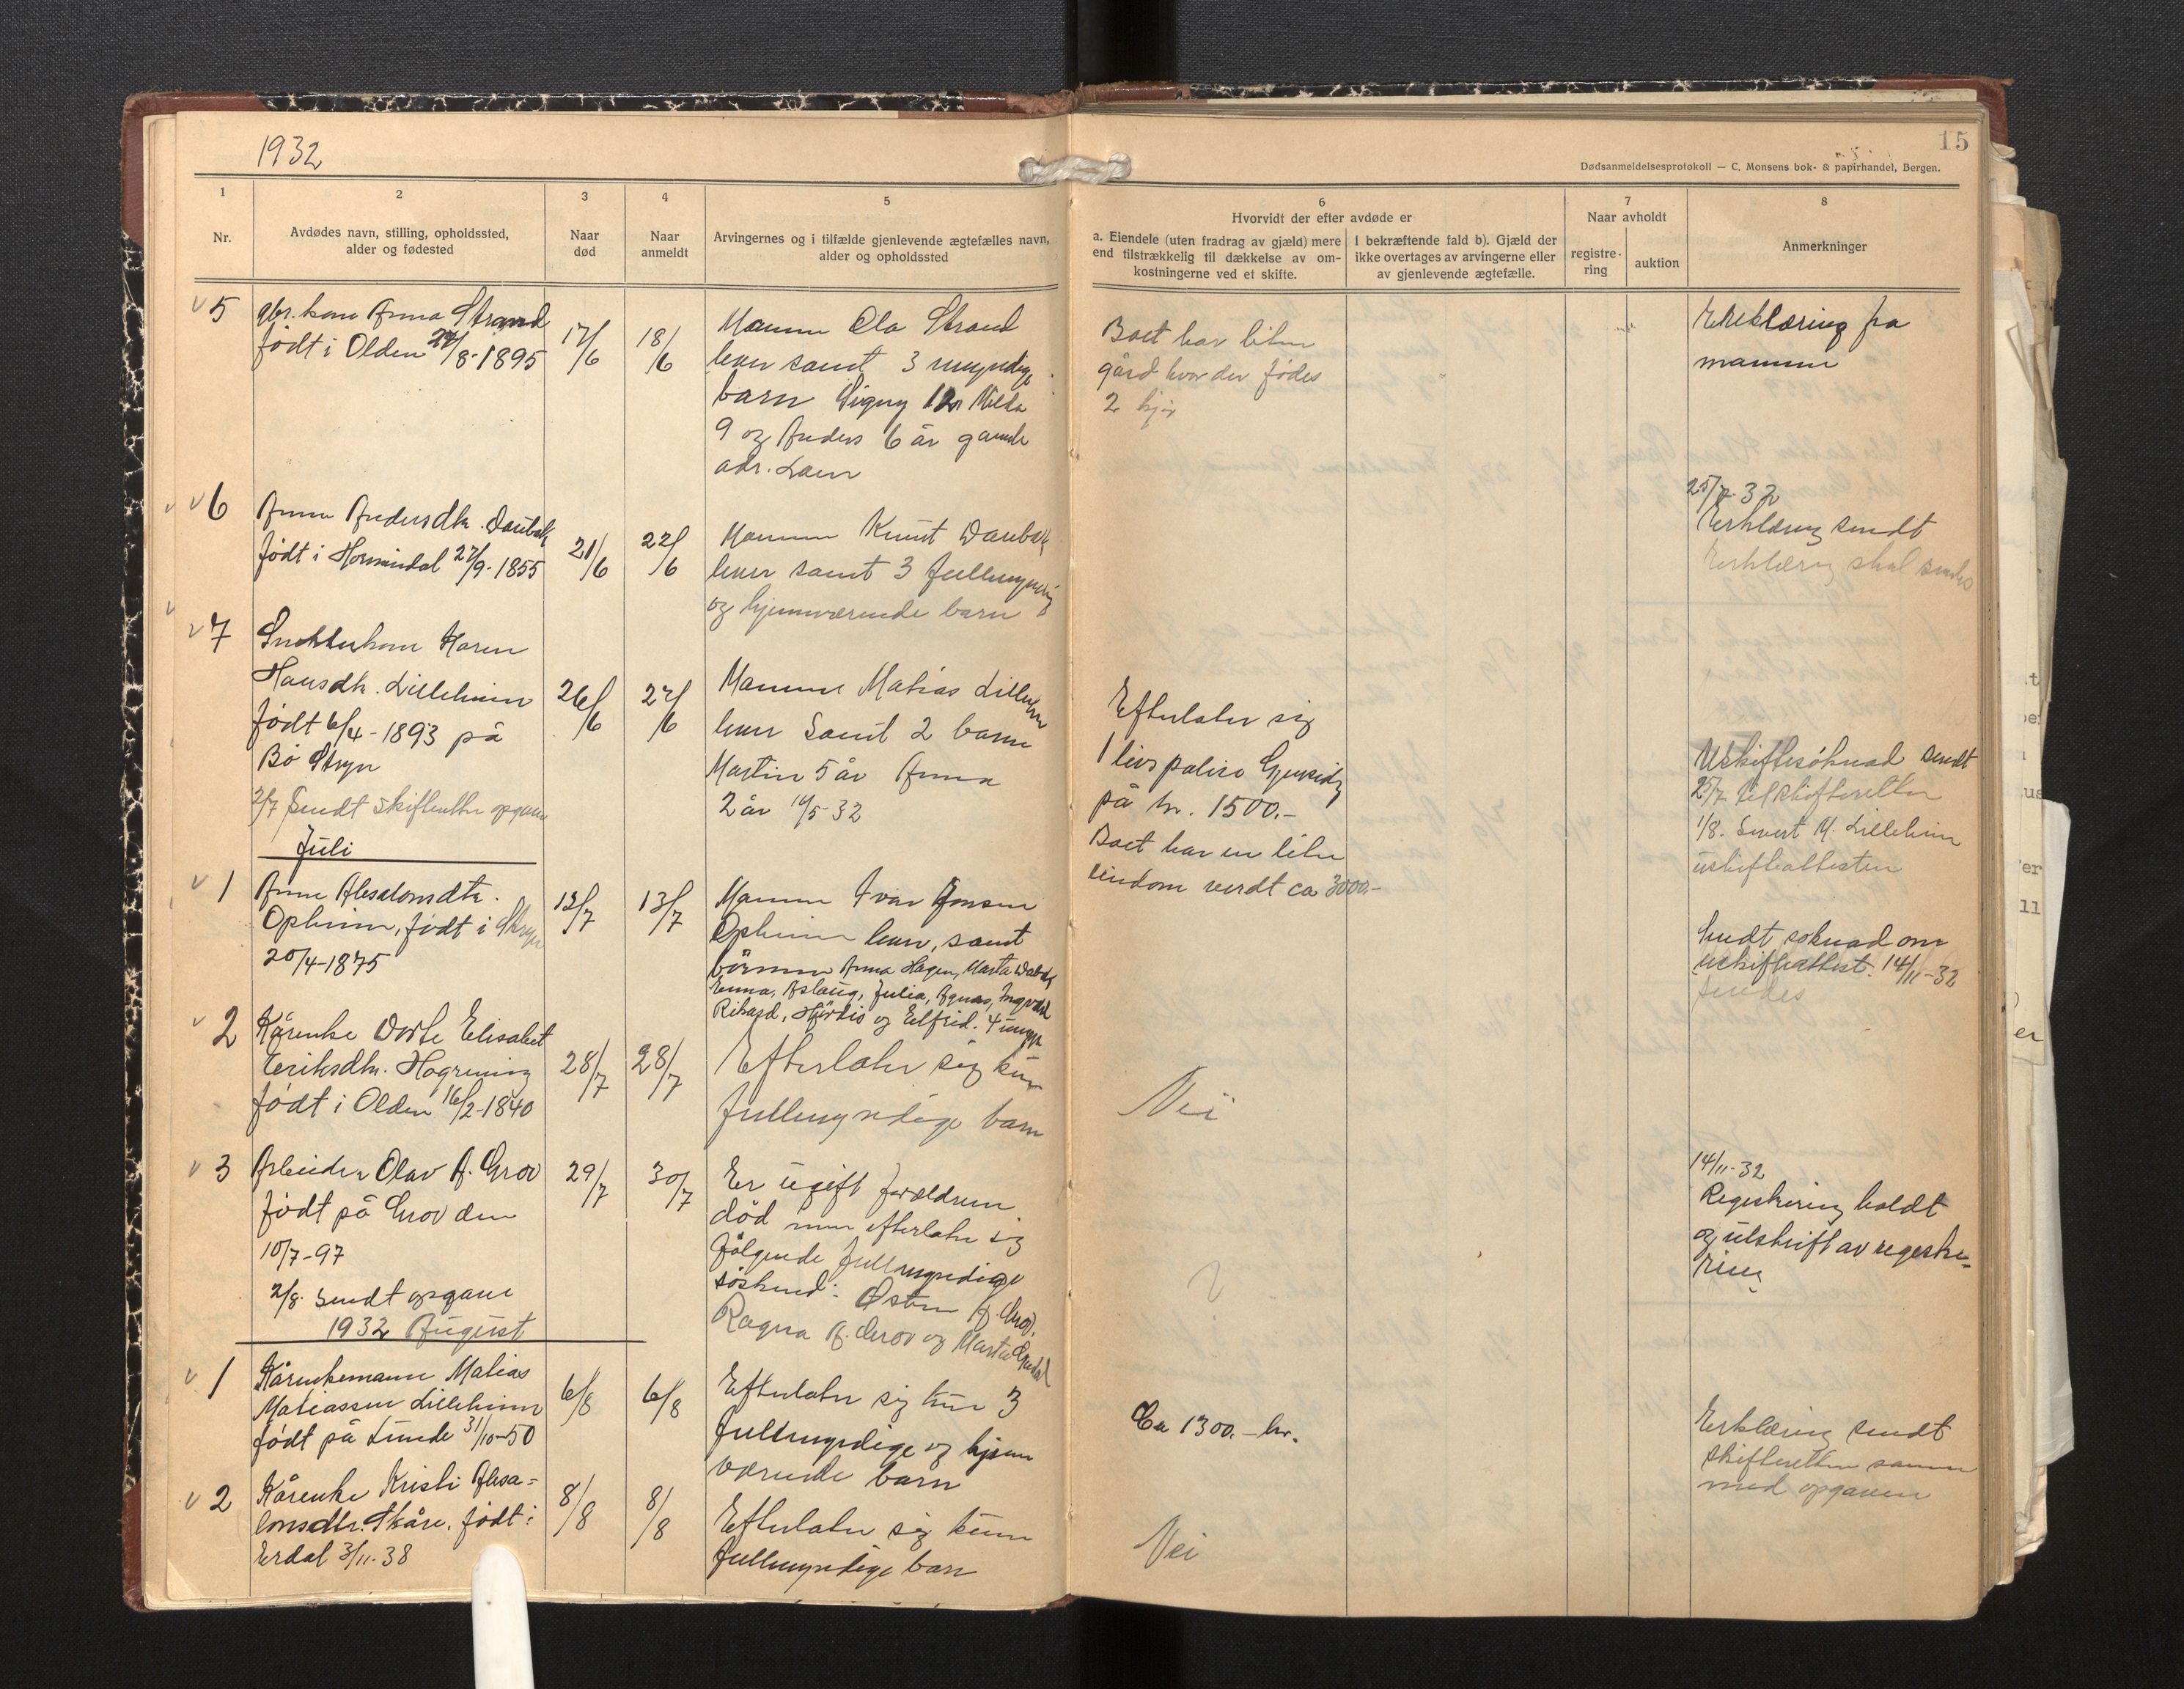 1932
15
Dødsanmeldelsesprotokoll — C. Monsens bok- & papirhandel, Bergen.
1
2
3
4
5
6
7
8
Nr.
Avdødes navn, stilling, opholdssted,
alder og fødested
Naar
død
Naar
anmeldt
Arvingernes og i tilfælde gjenlevende ægtefælles navn,
alder og opholdssted
Hvorvidt der efter avdøde er
a. Eiendele (uten fradrag av gjæld) mere
end tilstrækkelig til dækkelse av om-
kostningerne ved et skifte.
I bekræftende fald b). Gjæld der
ikke overtages av arvingerne eller
av gjenlevende ægtefælle.
Naar avholdt
registre-
ring
auktion
Anmerkninger
5
gbr. kone Anna Strand
født i Olden 8-1895
17/6
18/6
Mannen Ola Strand
lever samt 3 umyndige
barn Signy 12
9 og Anders 6 år gamle
adr. Loen
Boet har liten
gård hvor der fødes
2 kjør
Erklæring fra
mannen
6
Anna Andersdtr.
født i Hornindal 27/9-1855
21/6
22/6
Mannen Knut
lever samt 3 fullmyndig
og hjemværende barn
25/7-32
Erklæring sendt
Erklæring skal sendes
7
Karen
Hansdtr. Lilleheim
født 6/4-1893 på
Bø Stryn
2/7 Sendt skifteretten opgave
26/6
27/6
Mannen Matias Lilleheim
lever samt 2 barn
Martin 5 år Anna
2 år 32
Efterlater sig
1 livspolise Gjensidig
på kr. 1500.-
Boet har en liten
eiendom verdt ca 3000.-
Uskiftesøknad sendt
25/7 til skifteretten
1/8. Sendt M. Lilleheim
uskifteattesten
Juli
1
Anne Absalonsdtr.
Opheim, født i Stryn
20/4-1875
13/7
Mannen Ivar Jonsen
Opheim lever, samt
børnene Anna Hagen, Marta
Emma, Aslaug, Julia, Agnas, Ingvald
Rikard, Hjørdis og Elfrid. 4 umyn
Sendt søknad om
uskifteattest. 14/11-32
2
Kårenke Dorte Elisabet
Eriksdtr.
født i Olden 16/2-1840
28/7
28/7
Efterlater sig kun
fullmyndige barn
Nei
3
Arbeider Olav A. Grov
født på Grov den
10/7-97
2/8. Sendt opgave
29/7
30/7
Er ugift foreldrene
død men efterlater sig
følgende fullmyndige
søskend: Østen A. Grov,
Ragna A. Grov og Marta
14/11-32
Registrering holdt
og utskrift av registre-
ring
1932 August
1
Kårenkemann Matias
Matiassen Lilleheim
født på Lunde 31/10-50
6/8
6/8
Efterlater sig kun 3
fullmyndige og hjem
værende barn
Ca 1300.- kr.
Erklæring sendt
skifteretten sammen
med opgaven
2
Kårenke Kristi Absa=
lonsdtr. Skåre, født i
Erdal 3/11-38
8/8
8/8
Efterlater sig kun
fullmyndige barn
Nei